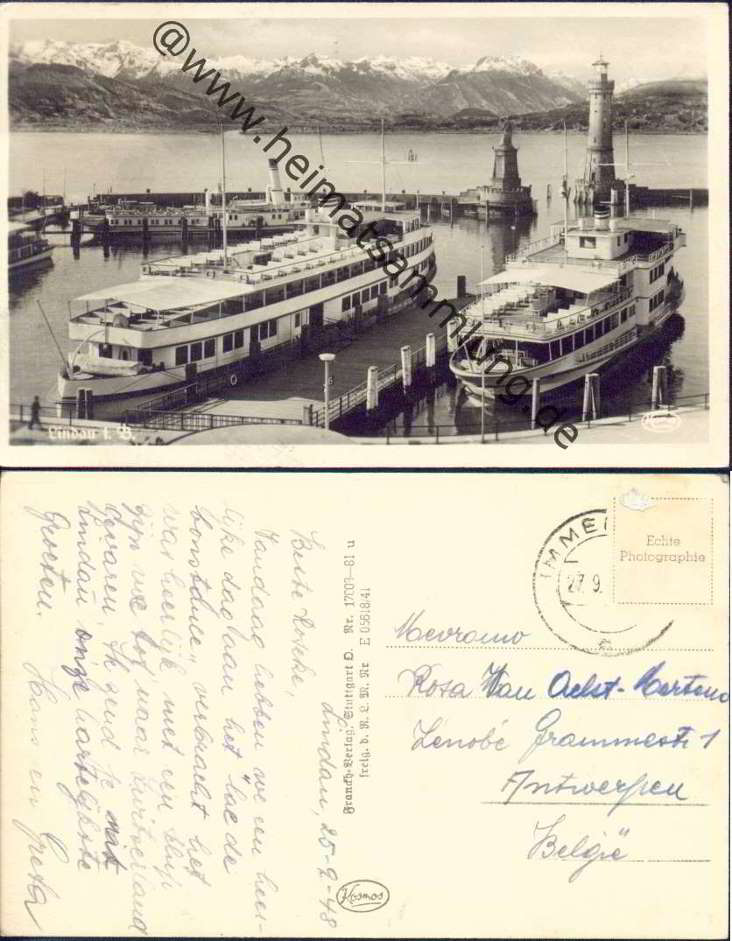 @www.heimatsammlung.de
Lindau i. B.
Lindau, 25-9-48
Beste Roseke,
Vandaag hebben we een heer-
lijke dag aan het "lac de
Constance" verbracht het
was heerlijk, met een ship
zijn we tot naar
gevaren. Ik zend je uit
Lindau onze hartelijkste
Groeten.
Hans en Greta
Franckh-Verlag, Stuttgart O. Nr. 17009-81 u
freig. d. R. L. M. Nr E 05618/41
Kosmos
IMMEN
27.9.
Echte
Photographie
Mevrouw
Rosa Van Aelst-Martens
Zénobé Grammestr 1
Antwerpen
België